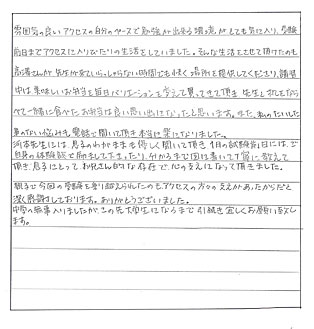 雰囲気の良いアクセスの自分のペースで勉強が出来る環境がとても気に入り、受験
前日までアクセスに入りびたりの生活をしていました。そんな生活をさせて頂けたのも
高澤さんが先生が来ていらっしゃらない時間でも快く場所を提供してくださり、講習
中は美味しいお弁当を毎日バリエーションを変えて買ってきて頂き 先生とわたしなら
べて一緒に食べたお弁当は良い思い出になったと思います。また、私のたいした
事のない悩みも電話で聞いて頂き本当に楽になりました。
河本先生には、息子のわがままも優しく聞いて頂き1月の試験前日には、ご
自身の体験談で励まして下さったり、分かるまで図は書いて丁寧に教えて
頂き息子にとって、お兄さん的な存在で心の支えになって頂きました。
親子で今回の受験を乗り越えられたのもアクセスの方々の支えがあったからだと
深く感謝しております。ありがとうございました。
中学の結果入りましたがこの先大学生になるまで引続き宜しくお願い致し
ます。